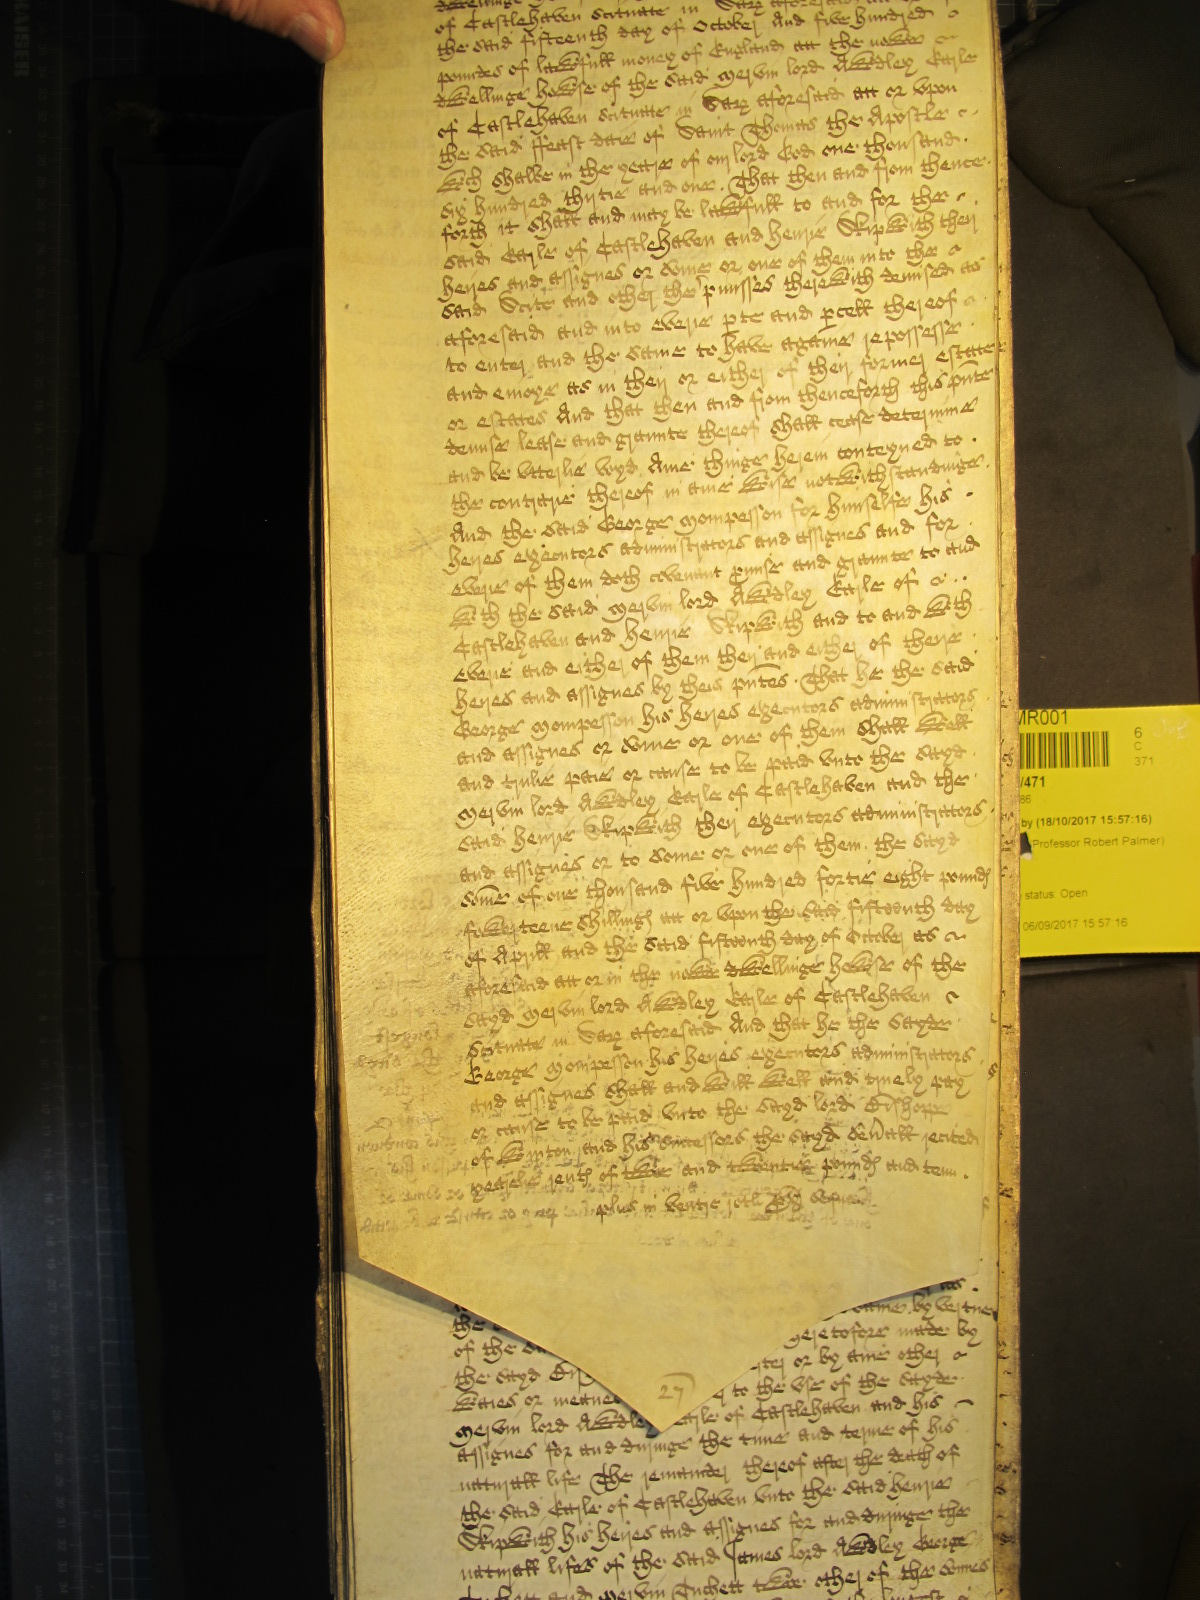 of Castlehaven scituate in Sarz aforesaid att or
the said fifteenth day of October And five hundred
poundes of lawfull money of England att the nowe
dwellinge howse of the said Mervin lord Awdley Earle
of Castlehaven scituate in Sarz aforesaid att or vpon
the said ffeast daie of Saint Thomas the Apostle
wch shalbe in the yeare of our lord God one thousand
six hundred thirtie and one. That then and from thence
forth it shall and may be lawfull to and for the
said Earle of Castlehaven and Henrie Skipwith their
heires and assignes or some or one of them into the
said Scite and other the pmisses therewith demised as
aforesaid and into everie pte and pcell thereof
to enter and the same to have againe repossesse
and enioye as in their or either of their former estate
or estates And that then and from thenceforth this pnte
demise lease and graunte thereof shall cease determine
and be vtterlie voyd. Anie thinge herein conteyned to
the contrarie thereof in anie wise notwithstandinge.
And the said George Mompesson for himselfe his
heires executors administrators and assignes and for
everie of them doth covenant pmise and graunte to and
wth the said Mervin lord Awdley Earle of
Castlehaven and Henrie Skipwith and to and wth
everie and either of them their and either of theire
heires and assignes by theis pntes. That he the said
George Mompesson his heires executors administrators
and assignes or some or one of them shall well
and trulie paie or cause to be paid vnto the sayd
Mervin lord Awdley Earle of Castlehaven and the
said Henrie Skipwith their executors administrators
and assignes or to some or one of them. the sayd
some of one thousand five hundred fortie eight pounds
fowerteene shillings att or vpon the said fifteenth day
of Aprill and the said fifteenth day of October as
aforesaid att or in the nowe dwellinge howse of the
sayd Mervin lord Awdley Earle of Castlehaven
scituate in Sarz aforesaid And that he the sayde
George Mompesson his heires executors administrators
and assignes shall and will well and truely pay
or cause to be paid vnto the sayd lord Bishopp
of Winton and his successors the sayd severall recited
yearelie rents of twoe and twentie pounds and tenn
plus in ventre rotli
27
the
same by vertue
of the heretofore made by
the sayd or by anie other
waies or meanes to the vse of the sayde
Mervin lord Awdley Earle of Castlehaven and his
assignes for and duringe the time and terme of his
naturall life The remainder thereof after the death of
the said Earle of Castlehaven vnto the said Henrie
Skipwith his heires and assignes for and duringe the
naturall lifes of the said James lord Awdley George
and Mervin Tuchett twoe other of the sonnes
MR001
6
C
371
/471
86
by (18/10/2017 15:57:16)
Professor Robert Palmer)
status: Open
06/09/2017 15:57:16